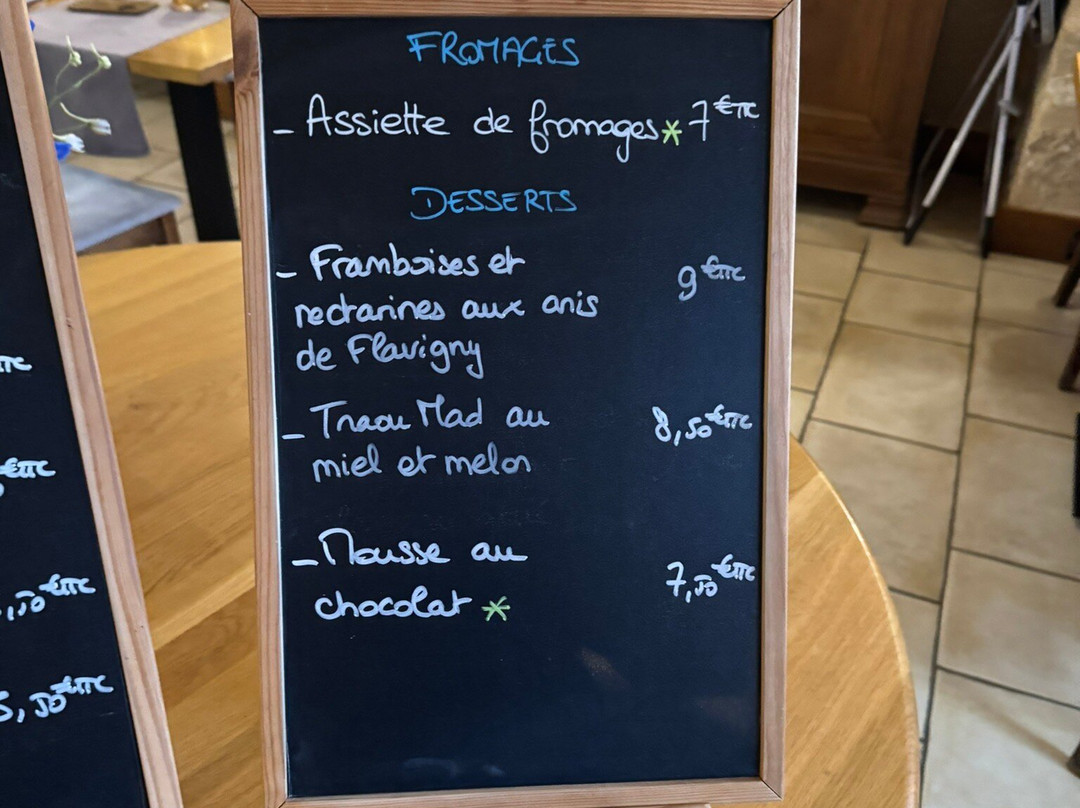 FROMAGES
- Assiette de fromages* 7 €TTC
DESSERTS
- Framboises et
nectarines aux anis
de Flavigny
9 €TTC
- Traou Mad au
miel et melon
8,50 €TTC
- Mousse au
chocolat *
7,50 €TTC
TTC
€TTC
,50 €TTC
5,50 €TTC